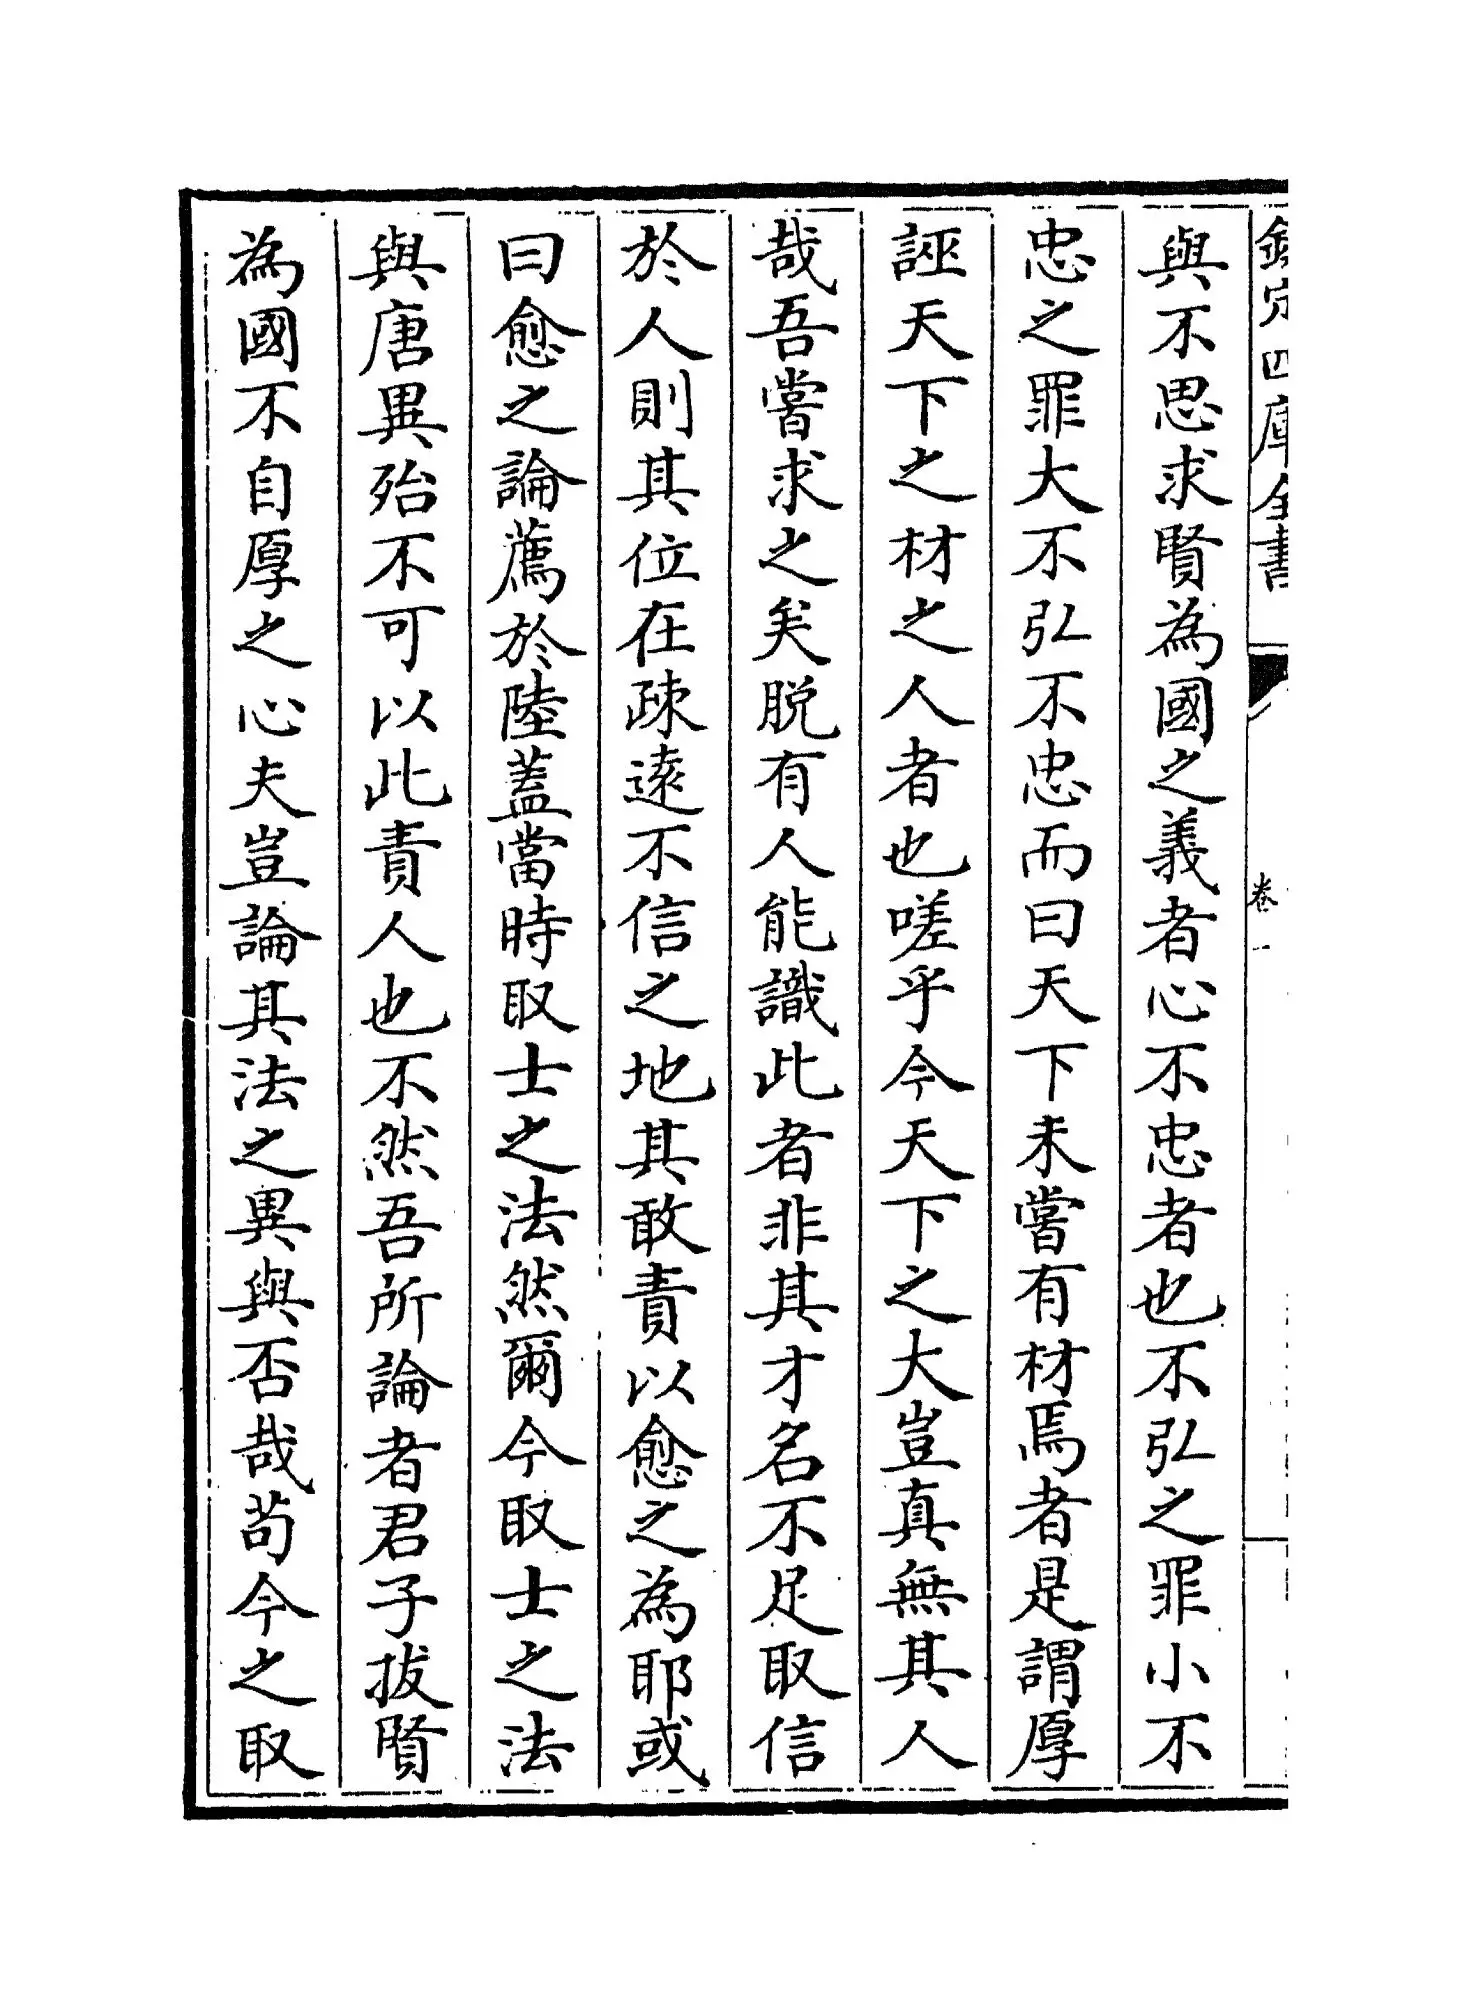 欽定四庫全書
卷一
與不思求賢為國之義者心不忠者也不弘之罪小不
忠之罪大不弘不忠而曰天下未嘗有材焉者是謂厚
誣天下之材之人者也嗟乎今天下之大豈真無其人
哉吾嘗求之矣脱有人能識此者非其才名不足取信
於人則其位在疎逺不信之地其敢責以愈之為耶或
曰愈之論薦於陸蓋當時取士之法然爾今取士之法
與唐異殆不可以此責人也不然吾所論者君子拔賢
為國不自厚之心夫豈論其法之異與否哉茍今之取